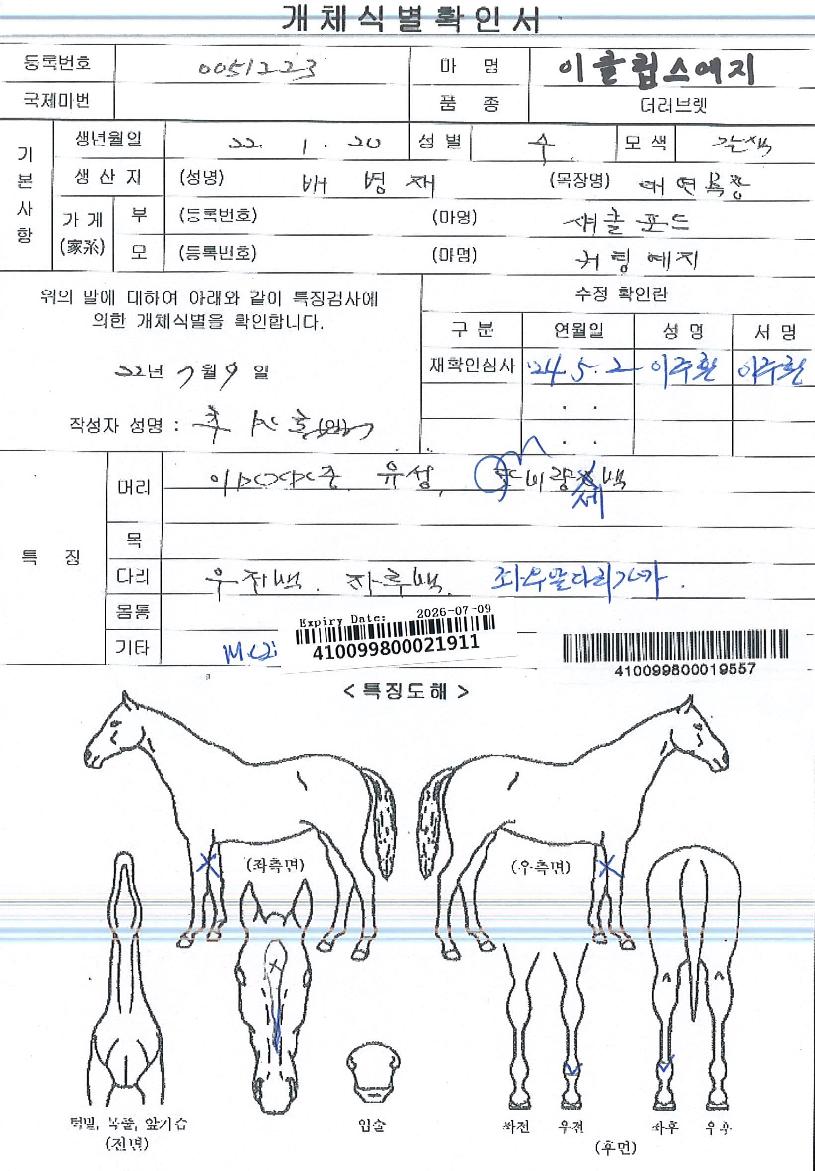 개체식별확인서
등록번호 0051223 마 명 이클립스에지
국제마번 품 종 더러브렛
기본사항
생년월일 22. 1. 20 성별 수 모색 갈색
생산지 (성명) 배 병 재 (목장명) 대연목장
가계 (家系) 부 (등록번호) (마명) 섀클포드
모 (등록번호) (마명) 커팅에지
위의 말에 대하여 아래와 같이 특징검사에
의한 개체식별을 확인합니다.
22년 7월 9일
작성자 성명 :
수정 확인란
구분 연월일 성명 서명
재확인심사 '24. 5. 2 이주환 이주환
. .
. .
특 징
머리 유성, 비량 세 백
목
다리 우전백. 좌후백. 좌우앞다리가마.
몸통
기타
Expiry Date: 2026-07-09
410099800021911
410099800019557
< 특징도해 >
(좌측면) (우측면)
턱밑, 목줄, 앞가슴
(전면)
입술
좌전 우전 좌후 우후
(후면)